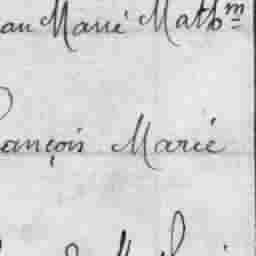 an Marié Math.m
ançois Marié